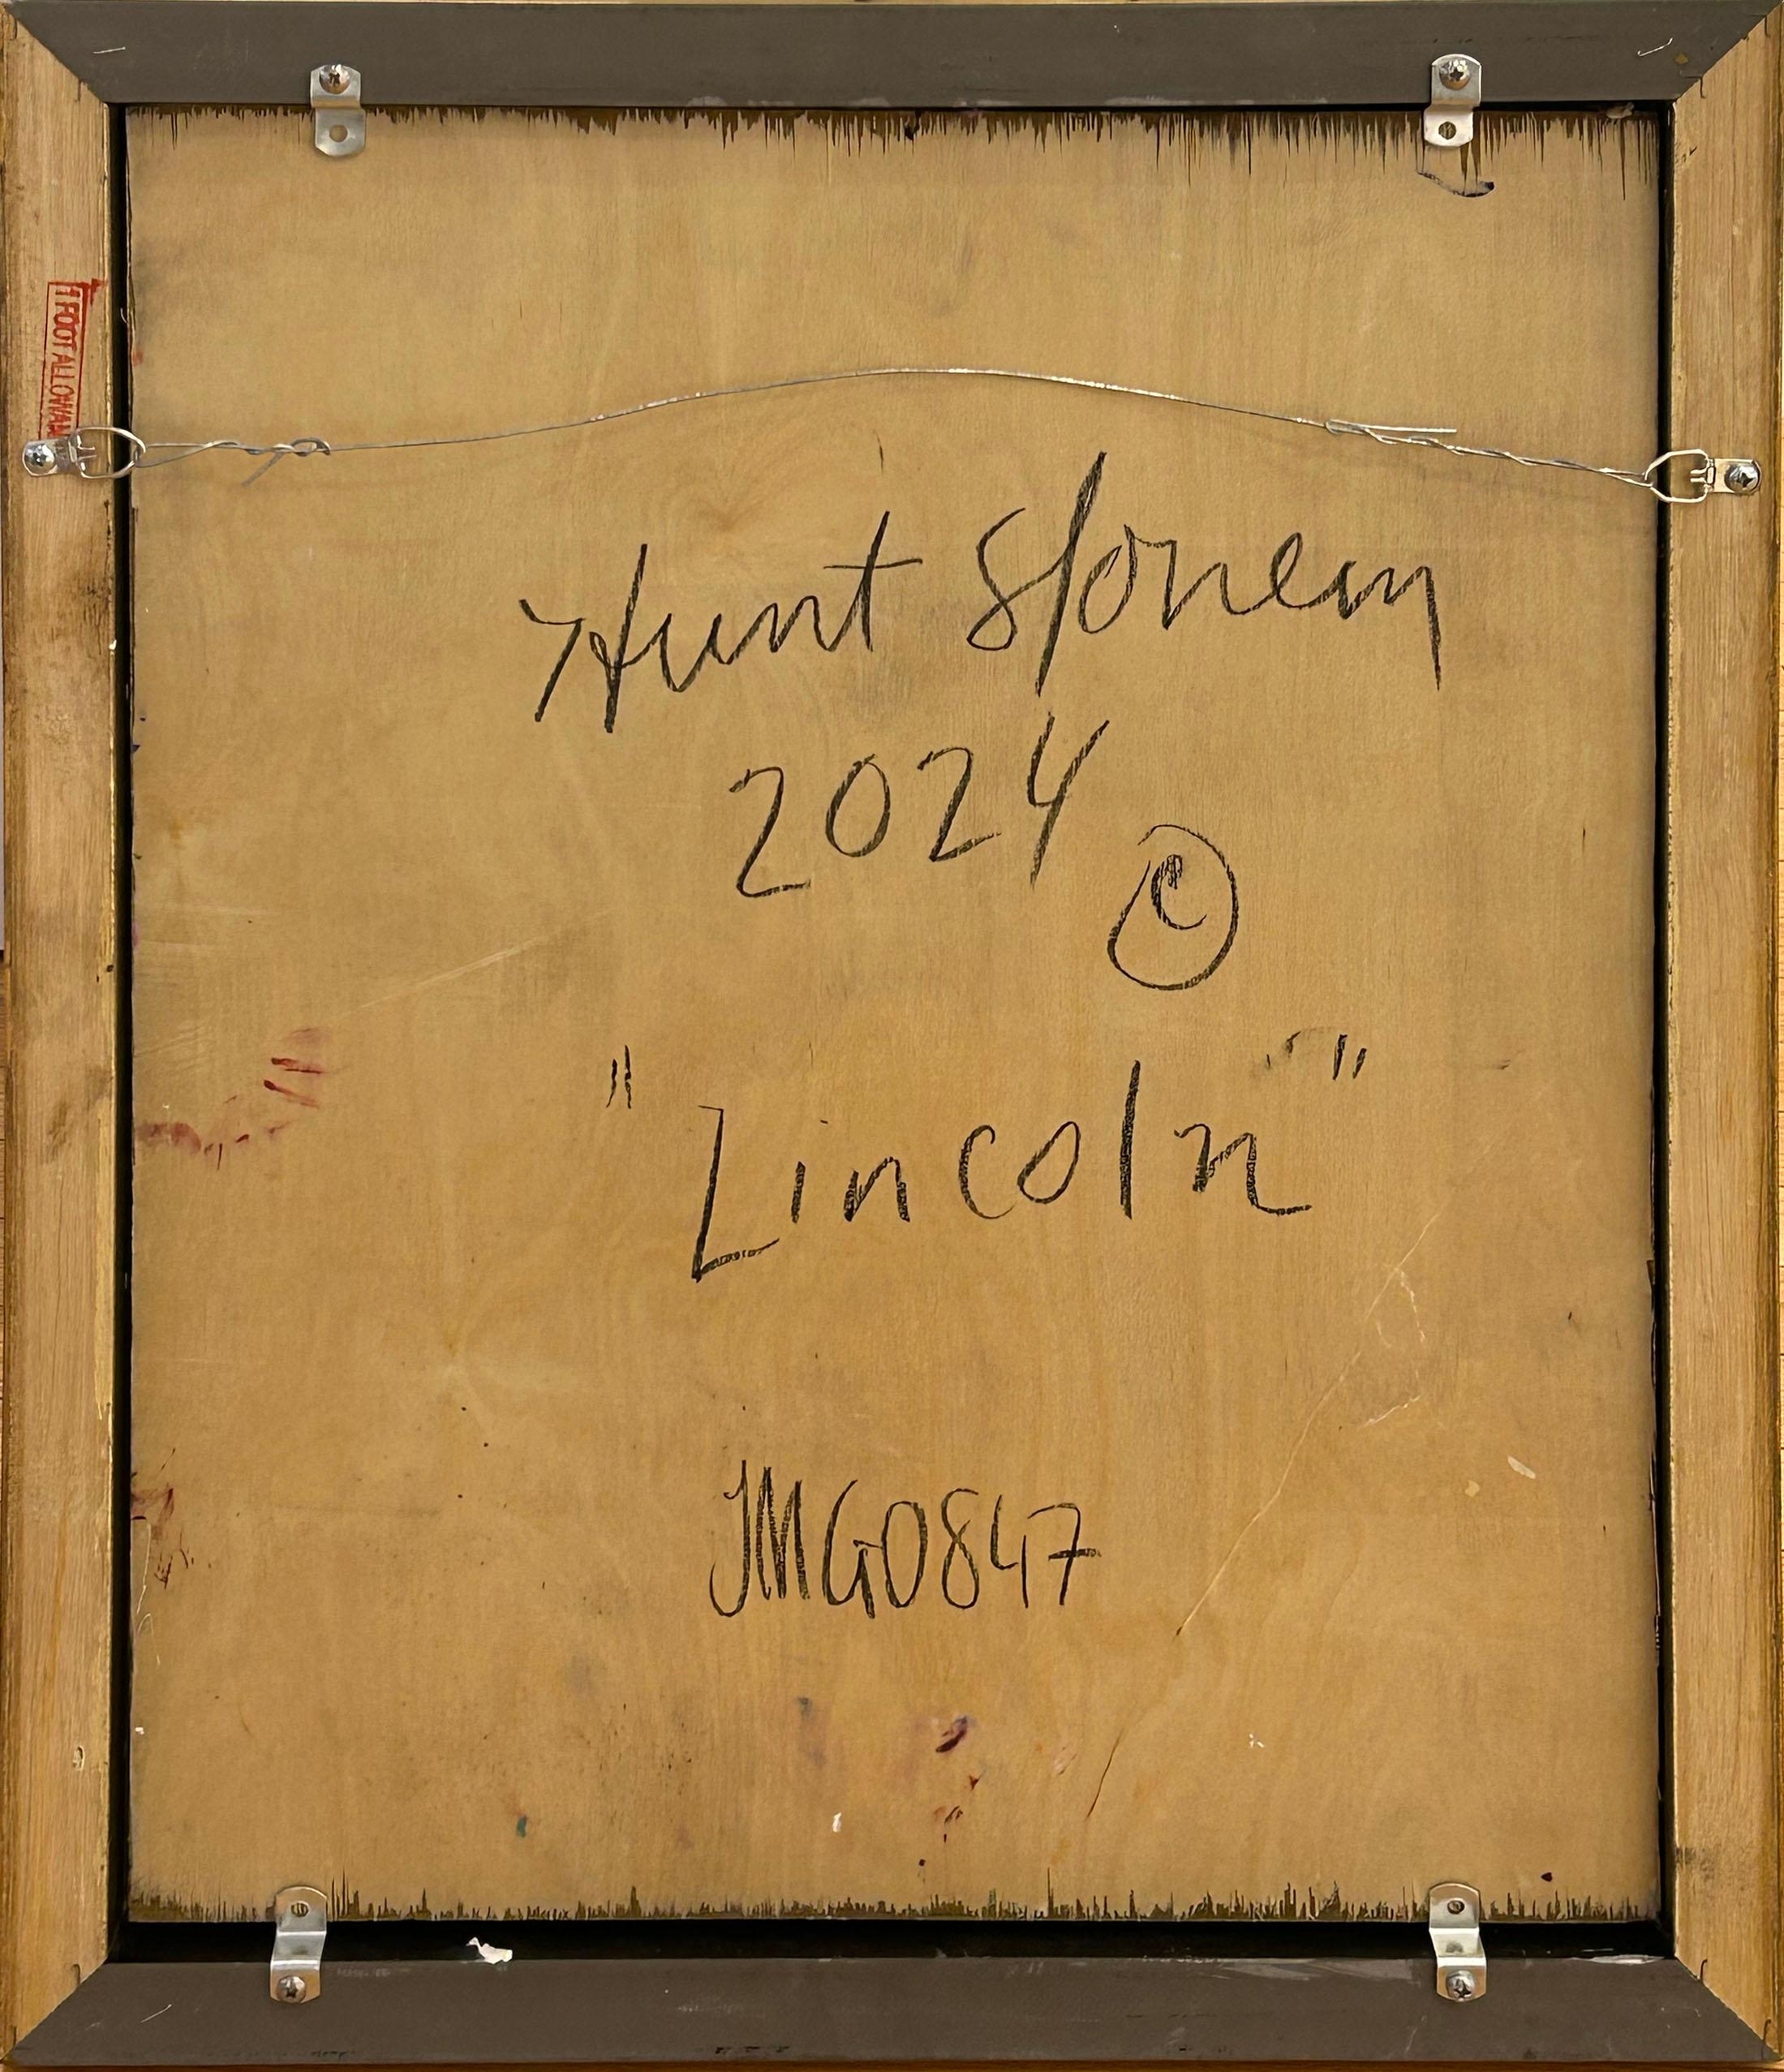 1 FOOT ALLOWAN
Hunt Slonem
2024
©
"Lincoln"
JMG0847